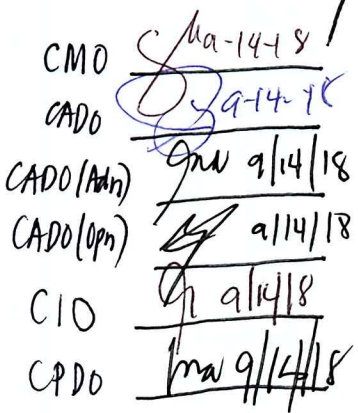 CMO 9-14-18
CADO 9-14-18
CADO(Adn) 9/14/18
CADO(Opn) 9/14/18
CIO 9/14/18
CPDO 9/14/18